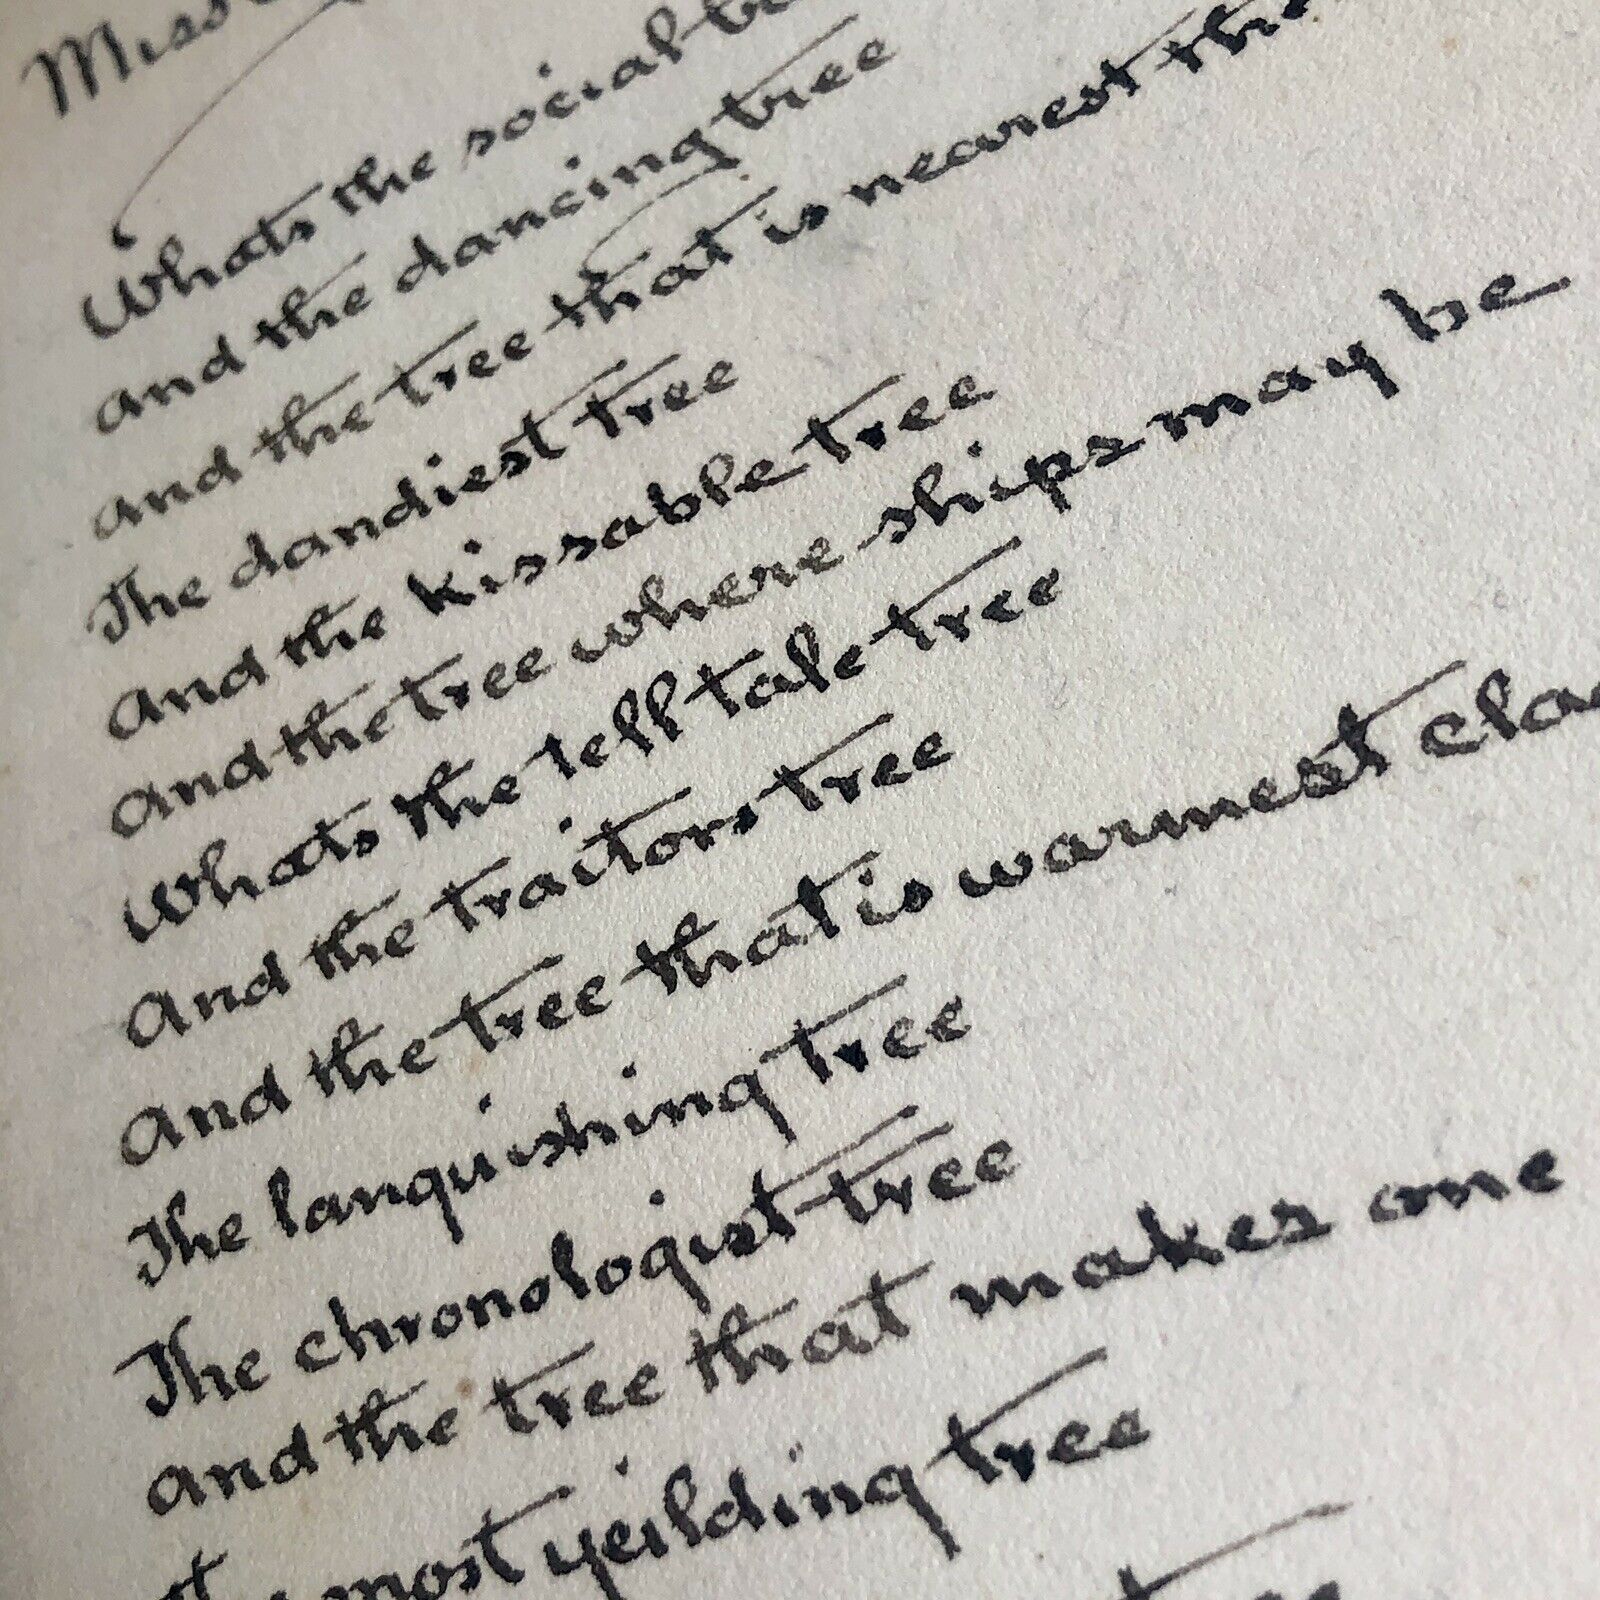 Miss
Whats the social
And the dancing tree
And the tree that is nearest the
The dandiest tree
And the kissable tree
And the tree where ships may be
Whats the tell tale tree
And the traitors tree
And the tree that is warmest
The languishing tree
The chronologist tree
And the tree that makes one
most yeilding tree